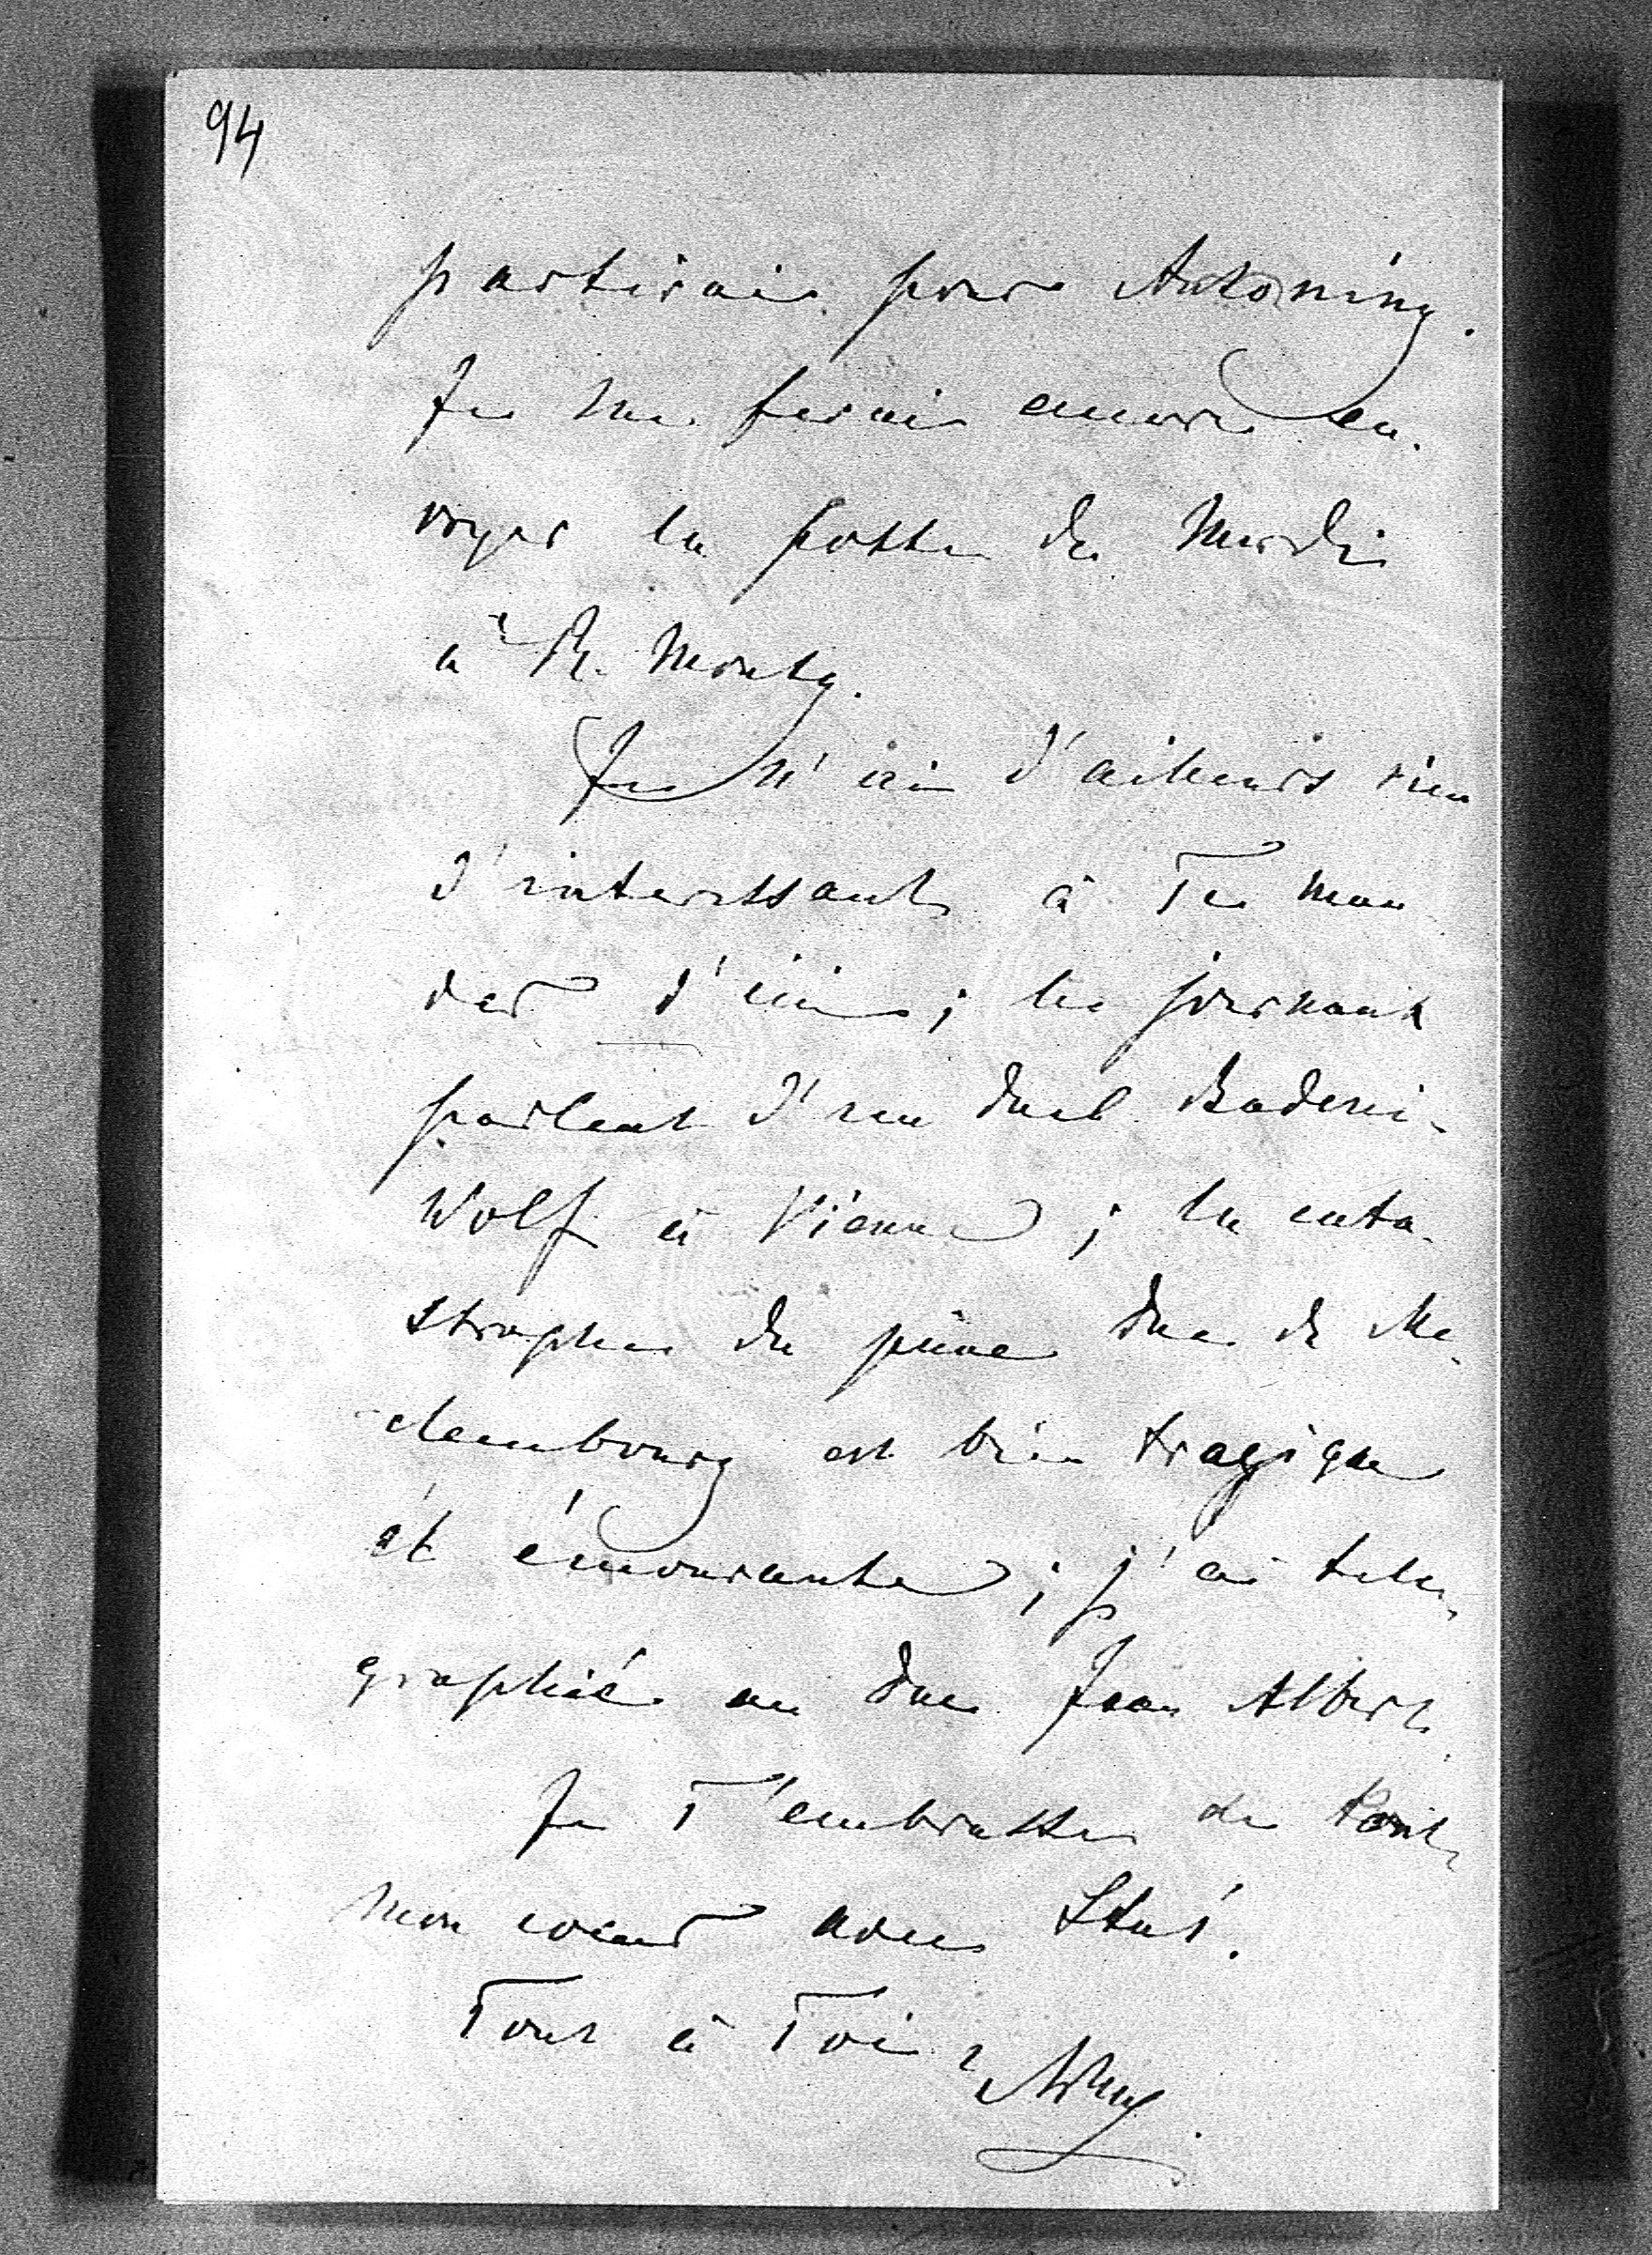 94
partirais pour Antoniny.
Je me ferais encore en-
voyer la poste de Mardi
à R. Monty.
Je n'ai d'ailleurs rien
d'interessant à Te man
der d'ici; les journaux
parlent d'un duel Badeni-
Wolf à Vienne; la cata-
strophe du jeune duc de Me-
clembourg est bien tragique
et émouvante; j'ai tele-
graphié au duc Jean Albert.
Je T'embrasse de tout
mon coeur avec Staś.
Tout à Toi